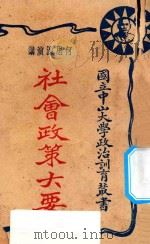 國立中山大學政治訓育叢書
何思源演講
社會政策大要